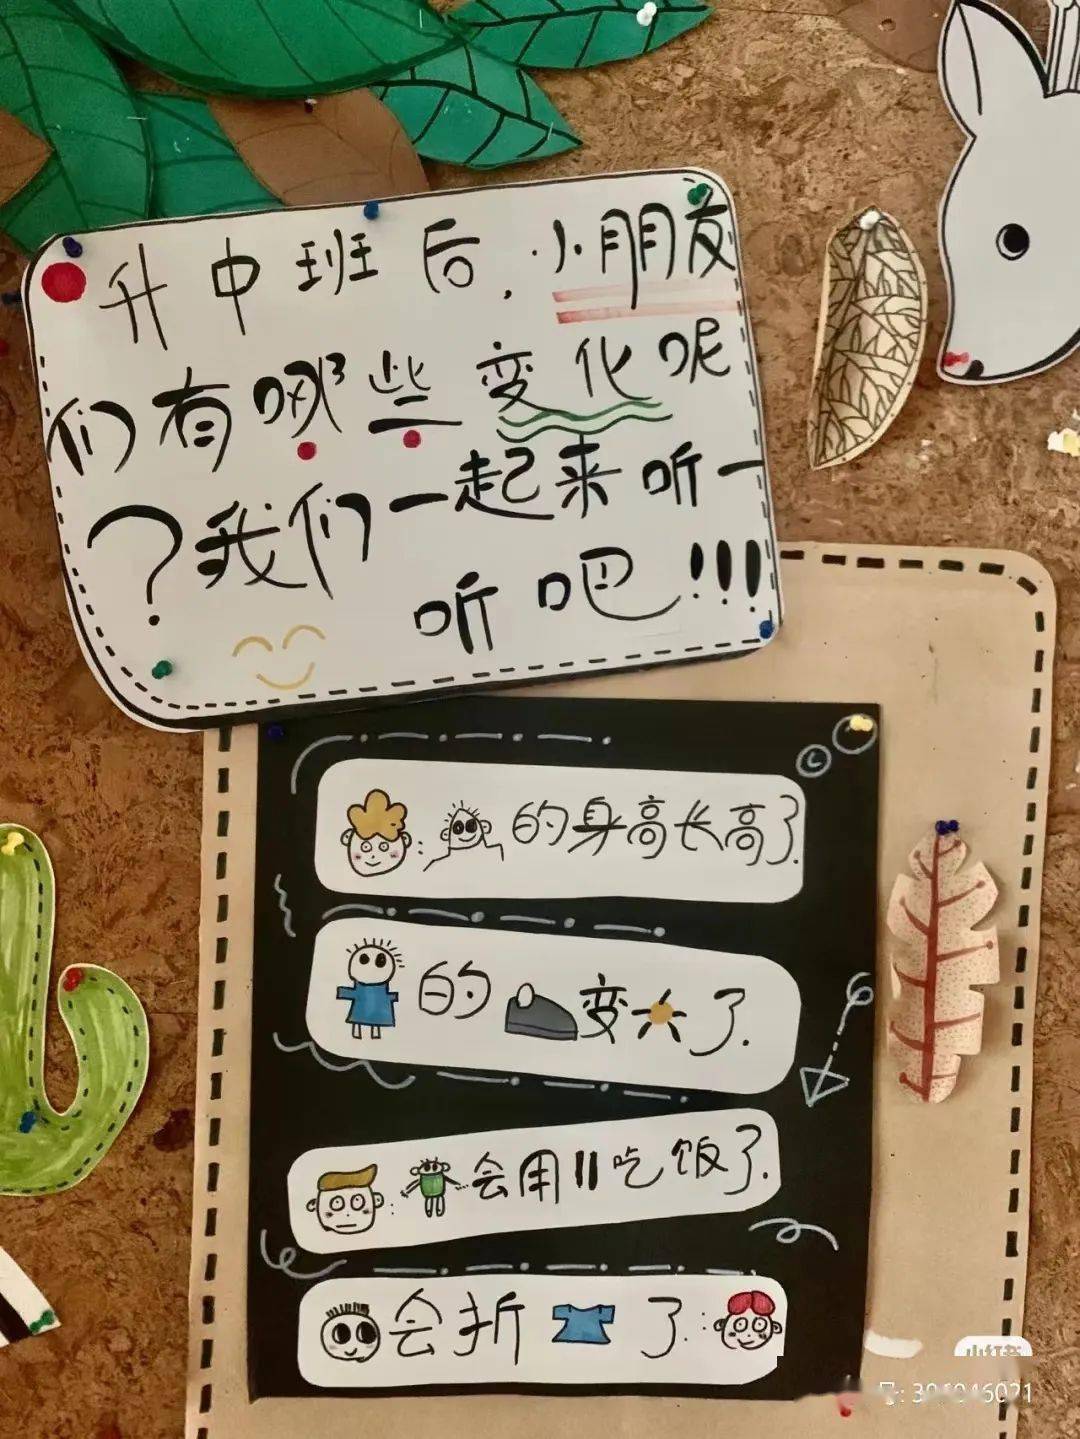 升中班后，小朋友
们有哪些变化呢
？我们一起来听一
听吧！！！
的身高长高了.
的变了.
会用吃饭了.
会折了